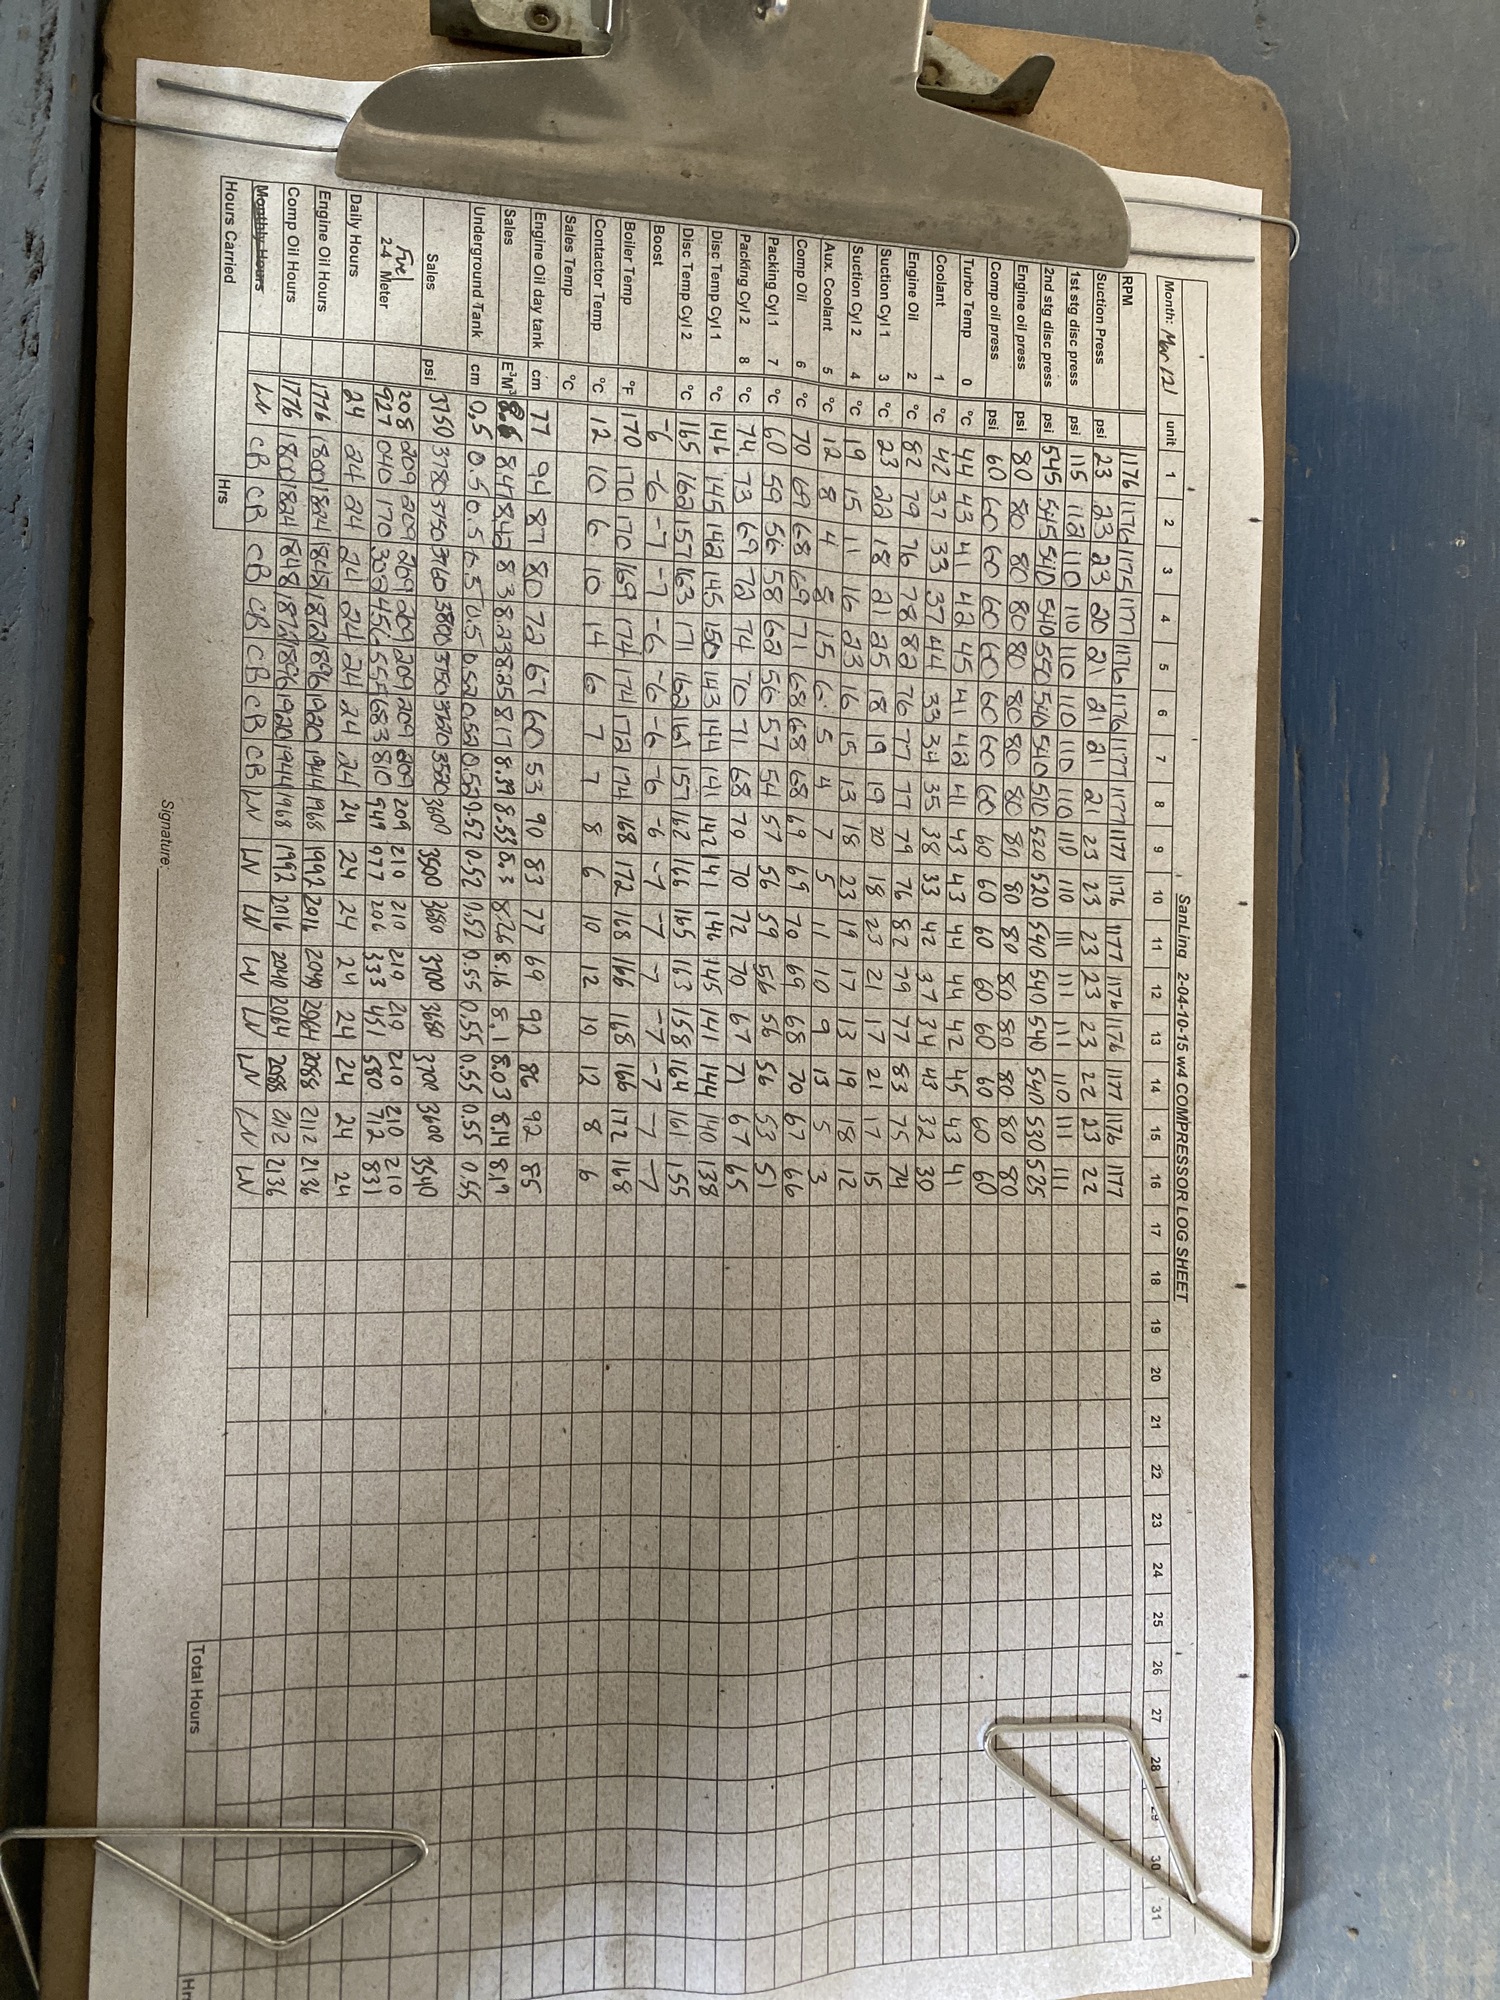 SanLing 2-04-10-15 w4 COMPRESSOR LOG SHEET
Month: Mar /21 unit 1 2 3 4 5 6 7 8 9 10 11 12 13 14 15 16 17 18 19 20 21 22 23 24 25 26 27 28 29 30 31
RPM 1176 1176 1175 1177 1176 1176 1177 1177 1177 1176 1177 1176 1176 1177 1176 1177
Suction Press psi 23 23 23 20 21 21 21 21 23 23 23 23 23 22 23 22
1st stg disc press psi 115 112 110 110 110 110 110 110 110 110 111 111 111 110 111 111
2nd stg disc press psi 545 545 540 540 550 540 540 510 520 520 540 540 540 540 530 525
Engine oil press psi 80 80 80 80 80 80 80 80 80 80 80 80 80 80 80 80
Comp oil press psi 60 60 60 60 60 60 60 60 60 60 60 60 60 60 60 60
Turbo Temp 0 °C 44 43 41 42 45 41 42 41 43 43 44 44 42 45 43 41
Coolant 1 °C 42 37 33 37 44 33 34 35 38 33 42 37 34 43 32 30
Engine Oil 2 °C 82 79 76 78 82 76 77 77 79 76 82 79 77 83 75 74
Suction Cyl 1 3 °C 23 22 18 21 25 18 19 19 20 18 23 21 17 21 17 15
Suction Cyl 2 4 °C 19 15 11 16 23 16 15 13 18 23 19 17 13 19 18 12
Aux. Coolant 5 °C 12 8 4 8 15 6 5 4 7 5 11 10 9 13 5 3
Comp Oil 6 °C 70 69 68 69 71 68 68 68 69 69 70 69 68 70 67 66
Packing Cyl 1 7 °C 60 59 56 58 62 56 57 54 57 56 59 56 56 56 53 51
Packing Cyl 2 8 °C 74 73 69 72 74 70 71 68 70 70 72 70 67 71 67 65
Disc Temp Cyl 1 °C 146 145 142 145 150 143 144 141 142 141 146 145 141 144 140 138
Disc Temp Cyl 2 °C 165 162 157 163 171 162 161 157 162 166 165 163 158 164 161 155
Boost -6 -6 -7 -7 -6 -6 -6 -6 -6 -7 -7 -7 -7 -7 -7 -7
Boiler Temp °F 170 170 170 169 174 174 172 174 168 172 168 166 168 166 172 168
Contactor Temp °C 12 10 6 10 14 6 7 7 8 6 10 12 10 12 8 6
Sales Temp °C
Engine Oil day tank cm 77 94 87 80 72 67 60 53 90 83 77 69 92 86 92 85
Sales E³M³ 8.6 8.47 8.42 8.3 8.23 8.25 8.17 8.39 8.33 8.3 8.26 8.16 8.1 8.03 8.14 8.19
Underground Tank cm 0.5 0.5 0.5 0.5 0.5 0.52 0.52 0.52 0.52 0.52 0.52 0.55 0.55 0.55 0.55 0.55
Sales psi 3750 3780 3750 3760 3800 3750 3520 3600 3500 3680 3700 3680 3700 3600 3540
Fuel 208 209 209 209 209 209 209 209 209 210 210 210 210 210 210 210
2-4 Meter 927 040 170 305 456 555 683 810 949 977 206 333 451 580 712 831
Daily Hours 24 24 24 24 24 24 24 24 24 24 24 24 24 24 24 24
Engine Oil Hours 1776 1800 1824 1848 1872 1896 1920 1944 1968 1992 2016 2040 2064 2088 2112 2136
Comp Oil Hours 1776 1800 1824 1848 1872 1896 1920 1944 1968 1992 2016 2040 2064 2088 2112 2136
Monthly Hours LN CB CB CB CB CB CB CB LN LN LN LN LN LN LN LN
Hours Carried Hrs
Total Hours
Signature: